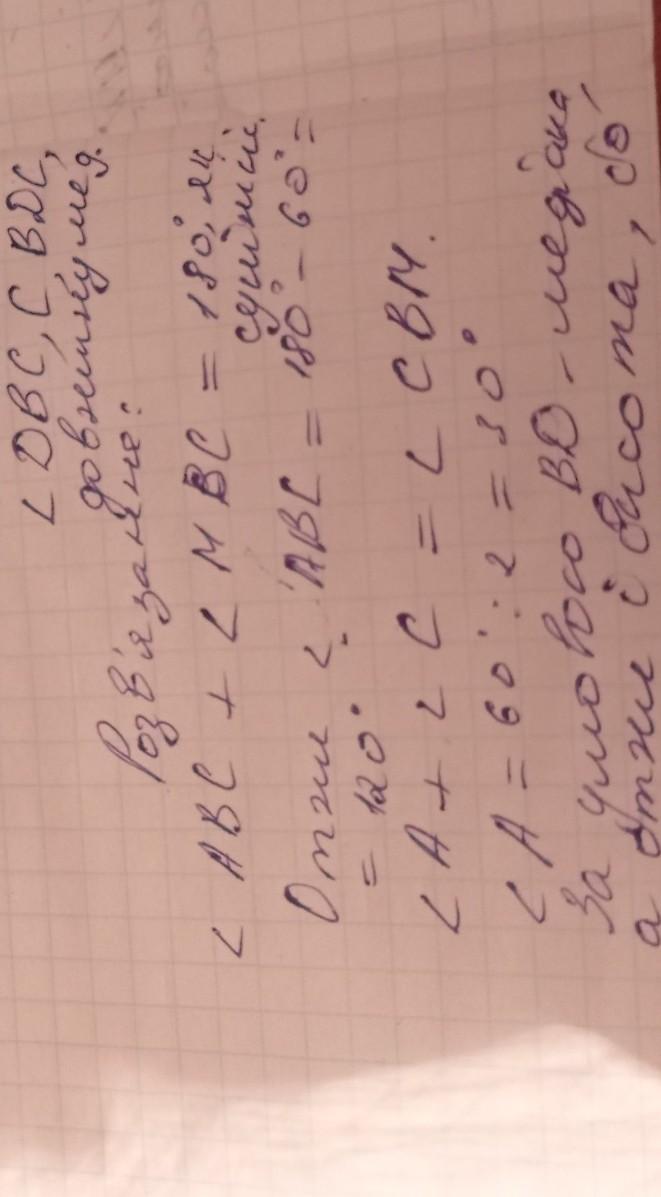 ∠DBC, ∠BDC,
довжину мед.
Розв'язання:
∠ABC + ∠MBC = 180°, як
суміжні.
Отже ∠ABC = 180° - 60° =
= 120°
∠A + ∠C = ∠CBM.
∠A = 60° : 2 = 30°
За умовою BD - медіана,
а отже і висота, бо